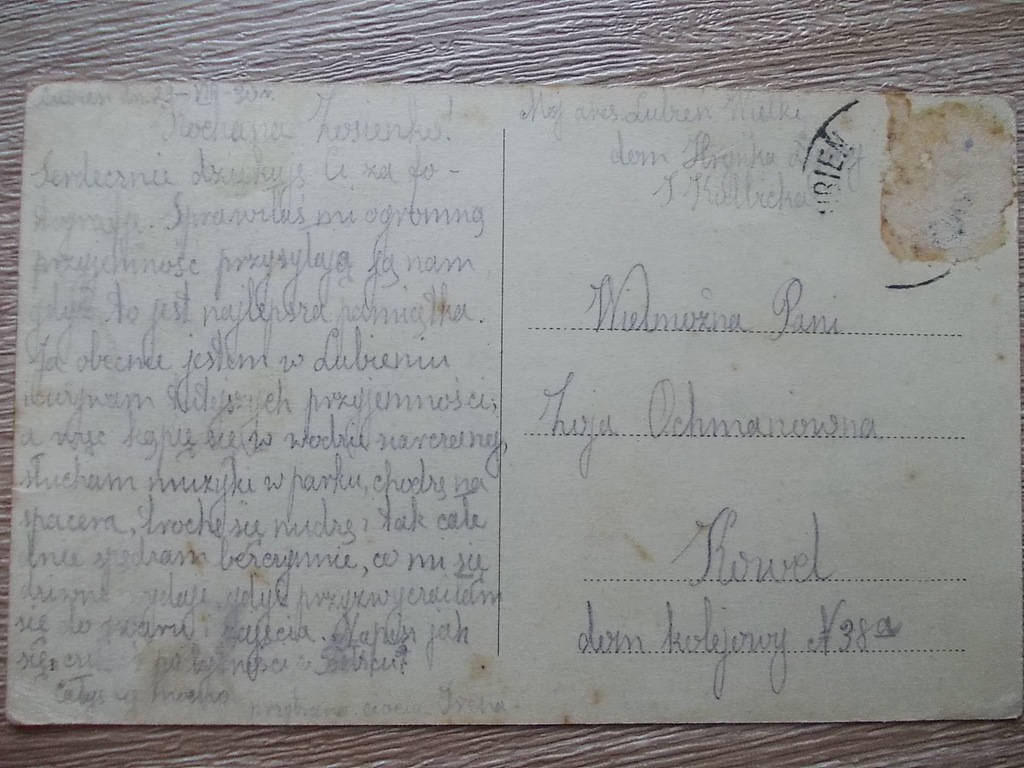 Lubień dn. 23-VIII-30 r.
Kochana Zosienko!
Serdecznie dziękuję Ci za fo-
tografję. Sprawiłaś mi ogromną
przyjemność przysyłając ją nam
gdyż to jest najlepsza pamiątka.
Ja obecnie jestem w Lubieniu
i używam tutejszych przyjemności,
a więc kąpię się w wodzie siarczanej,
słucham muzyki w parku, chodzę na
spacera, trochę się nudzę i tak całe
dnie spędzam bezczynnie, co mi się
dziwne wydaje gdyż przyzwyczaiłam
się do gwaru i zajęcia. Napisz jak
się
całuję mocno
ciocia Irena
Mój adres Lubień Wielki
dom Hrynka
J.
LUBIEŃ
Wielmożna Pani
Zofja Ochmanówna
Kowel
dom kolejowy N 38a